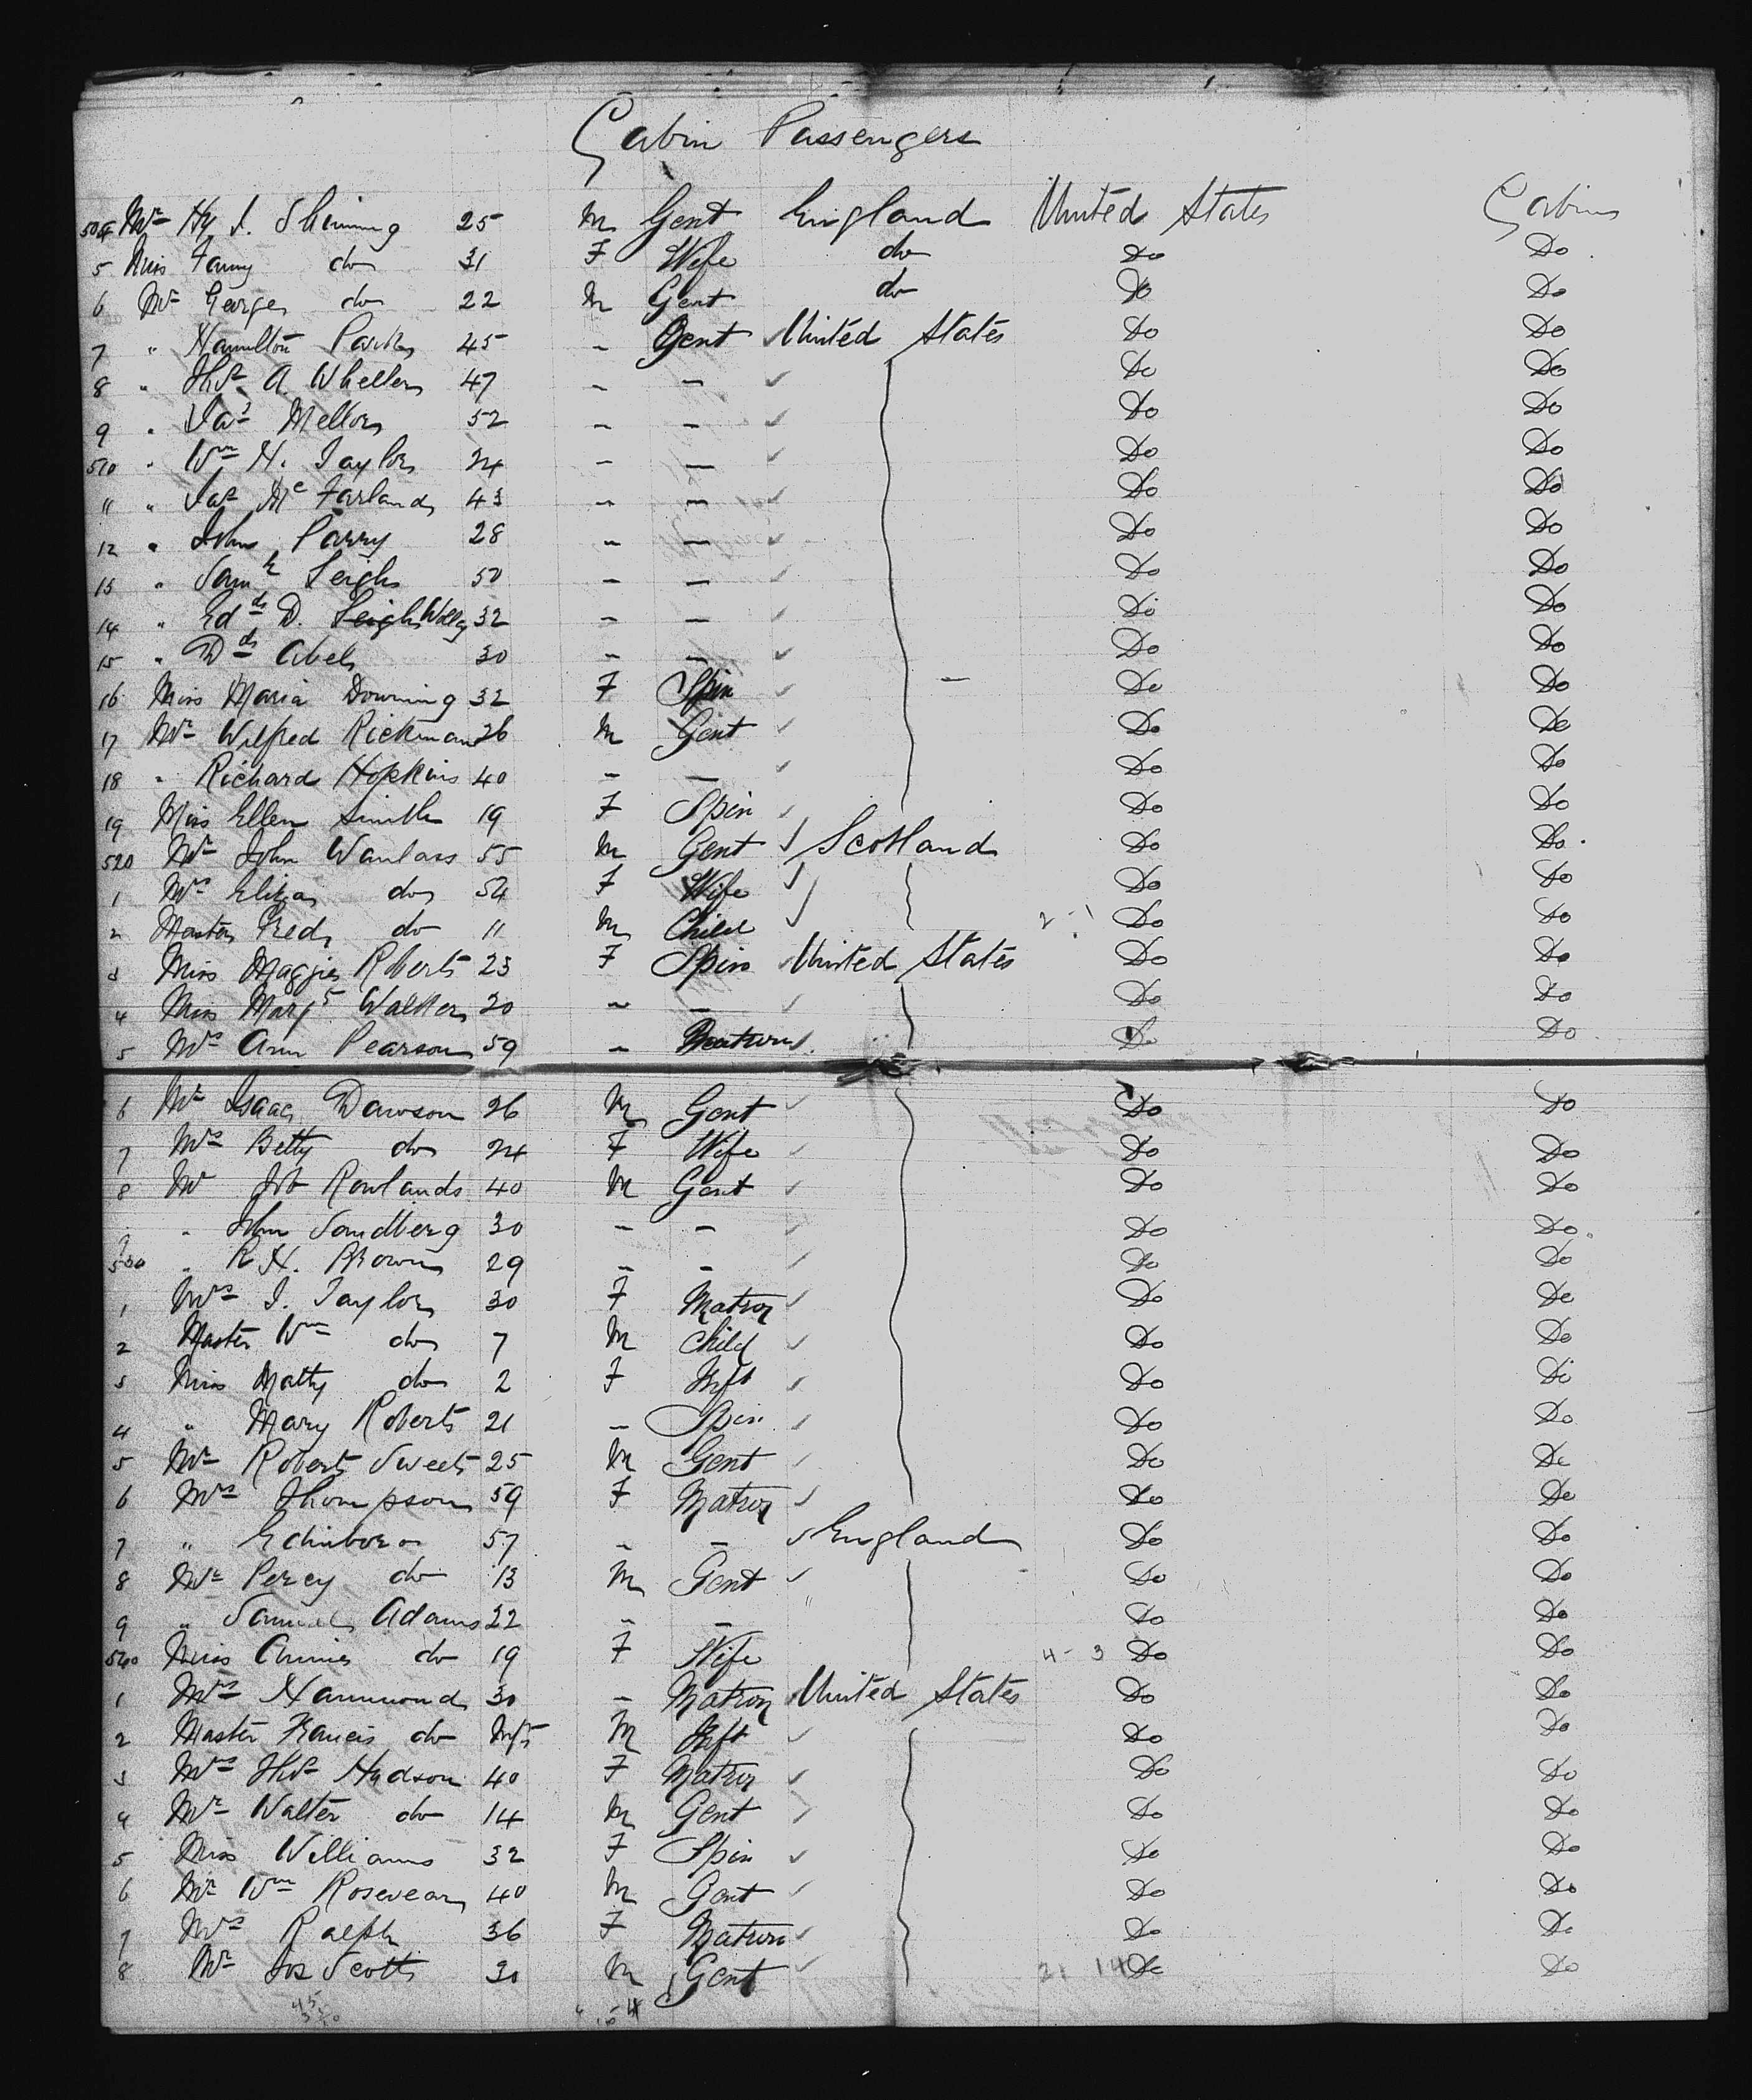 Cabin Passengers
504 Mr Hy J. Shinning 25 M Gent England United States Cabin
5 Miss Fanny do 31 F Wife do Do Do
6 Mr George do 22 M Gent do Do Do
7 " Hamilton Parks 45 - Gent United States Do Do
8 " Thos A. Wheller 47 - - Do Do
9 " Jas Mellors 52 - - Do Do
510 " Wm H. Taylor 24 - - Do Do
11 " Jas McFarland 43 - - Do Do
12 " John Parry 28 - - Do Do
13 " Saml Leigh 50 - - Do Do
14 " Edwd D. Leigh 32 - - Do Do
15 " Dd Abels 30 - - Do Do
16 Miss Maria Downing 32 F Spin Do Do
17 Mr Wilfred Rickman 26 M Gent Do Do
18 " Richard Hopkins 40 - - Do Do
19 Miss Ellen Smith 19 F Spin Do Do
520 Mr John Wanlass 55 M Gent Scotland Do Do
1 Mrs Eliza do 54 F Wife Do Do
2 Master Fred do 11 M Child 2-1 Do Do
3 Miss Maggie Roberts 23 F Spin United States Do Do
4 Miss Margt Walker 20 - - Do Do
5 Mrs Ann Pearson 59 - Matron Do Do
6 Mr Isaac Dawson 26 M Gent Do Do
7 Mrs Betty do 24 F Wife Do Do
8 Mr Job Rowlands 40 M Gent Do Do
9 " John Sandberg 30 - - Do Do
530 " R H. Brown 29 - - Do Do
1 Mrs J. Taylor 30 F Matron Do Do
2 Master Wm do 7 M Child Do Do
3 Miss Matty do 2 F Inft Do Do
4 " Mary Roberts 21 - Spin Do Do
5 Mr Robert Sweet 25 M Gent Do Do
6 Mrs Thompson 59 F Matron Do Do
7 " Edinboro 57 - - England Do Do
8 Mr Percy do 13 M Gent Do Do
9 " Samuel Adams 22 - - Do Do
540 Miss Annie do 19 F Wife 4-3 Do Do
1 Mrs Hammond 30 - Matron United States Do Do
2 Master Francis do Inft M Inft Do Do
3 Mrs Thos Hudson 40 F Matron Do Do
4 Mr Walter do 14 M Gent Do Do
5 Miss Williams 32 F Spin Do Do
6 Mr Wm Rosevear 40 M Gent Do Do
7 Mrs Ralph 36 F Matron Do Do
8 Mr Jos Scott 30 M Gent Do Do